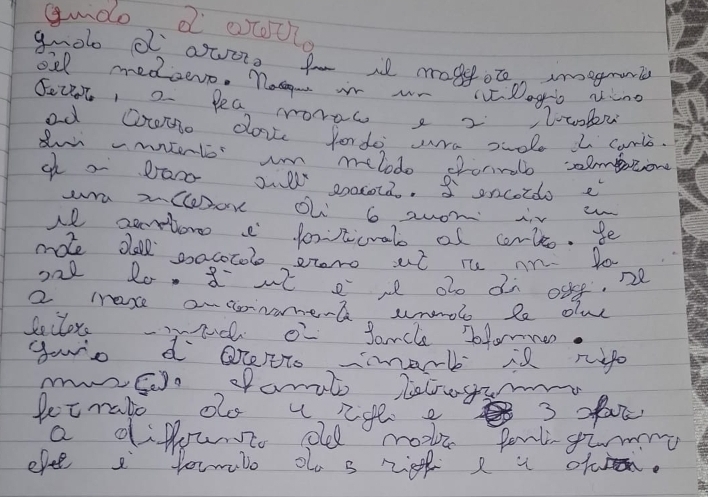 Guido di arezzo
guido di arezzo fu il maggiore insegnante
del medioevo. Nacque in un villaggio vicino
Ferrara, si fece monaco e si trasferì
ad Arezzo dove fondò una scuola di canto.
Lui inventò un metodo chiamato solmisazione
si basa sull' esacordo. L' esacordo è
una successione di 6 suoni in cui
il semitono è posizionato al centro. Le
note dell' esacordo erano ut re mi fa
sol la. L' ut è il do di oggi. Il
si nasce successivamente unendo le due
lettere iniziali di Sancte Iohannes.
Guido di Arezzo inventò il rigo
musicale chiamato tetragramma
formato da 4 righe e 3 spazi
a differenza del nostro pentagramma
che è formato da 5 righe e 4 spazi.